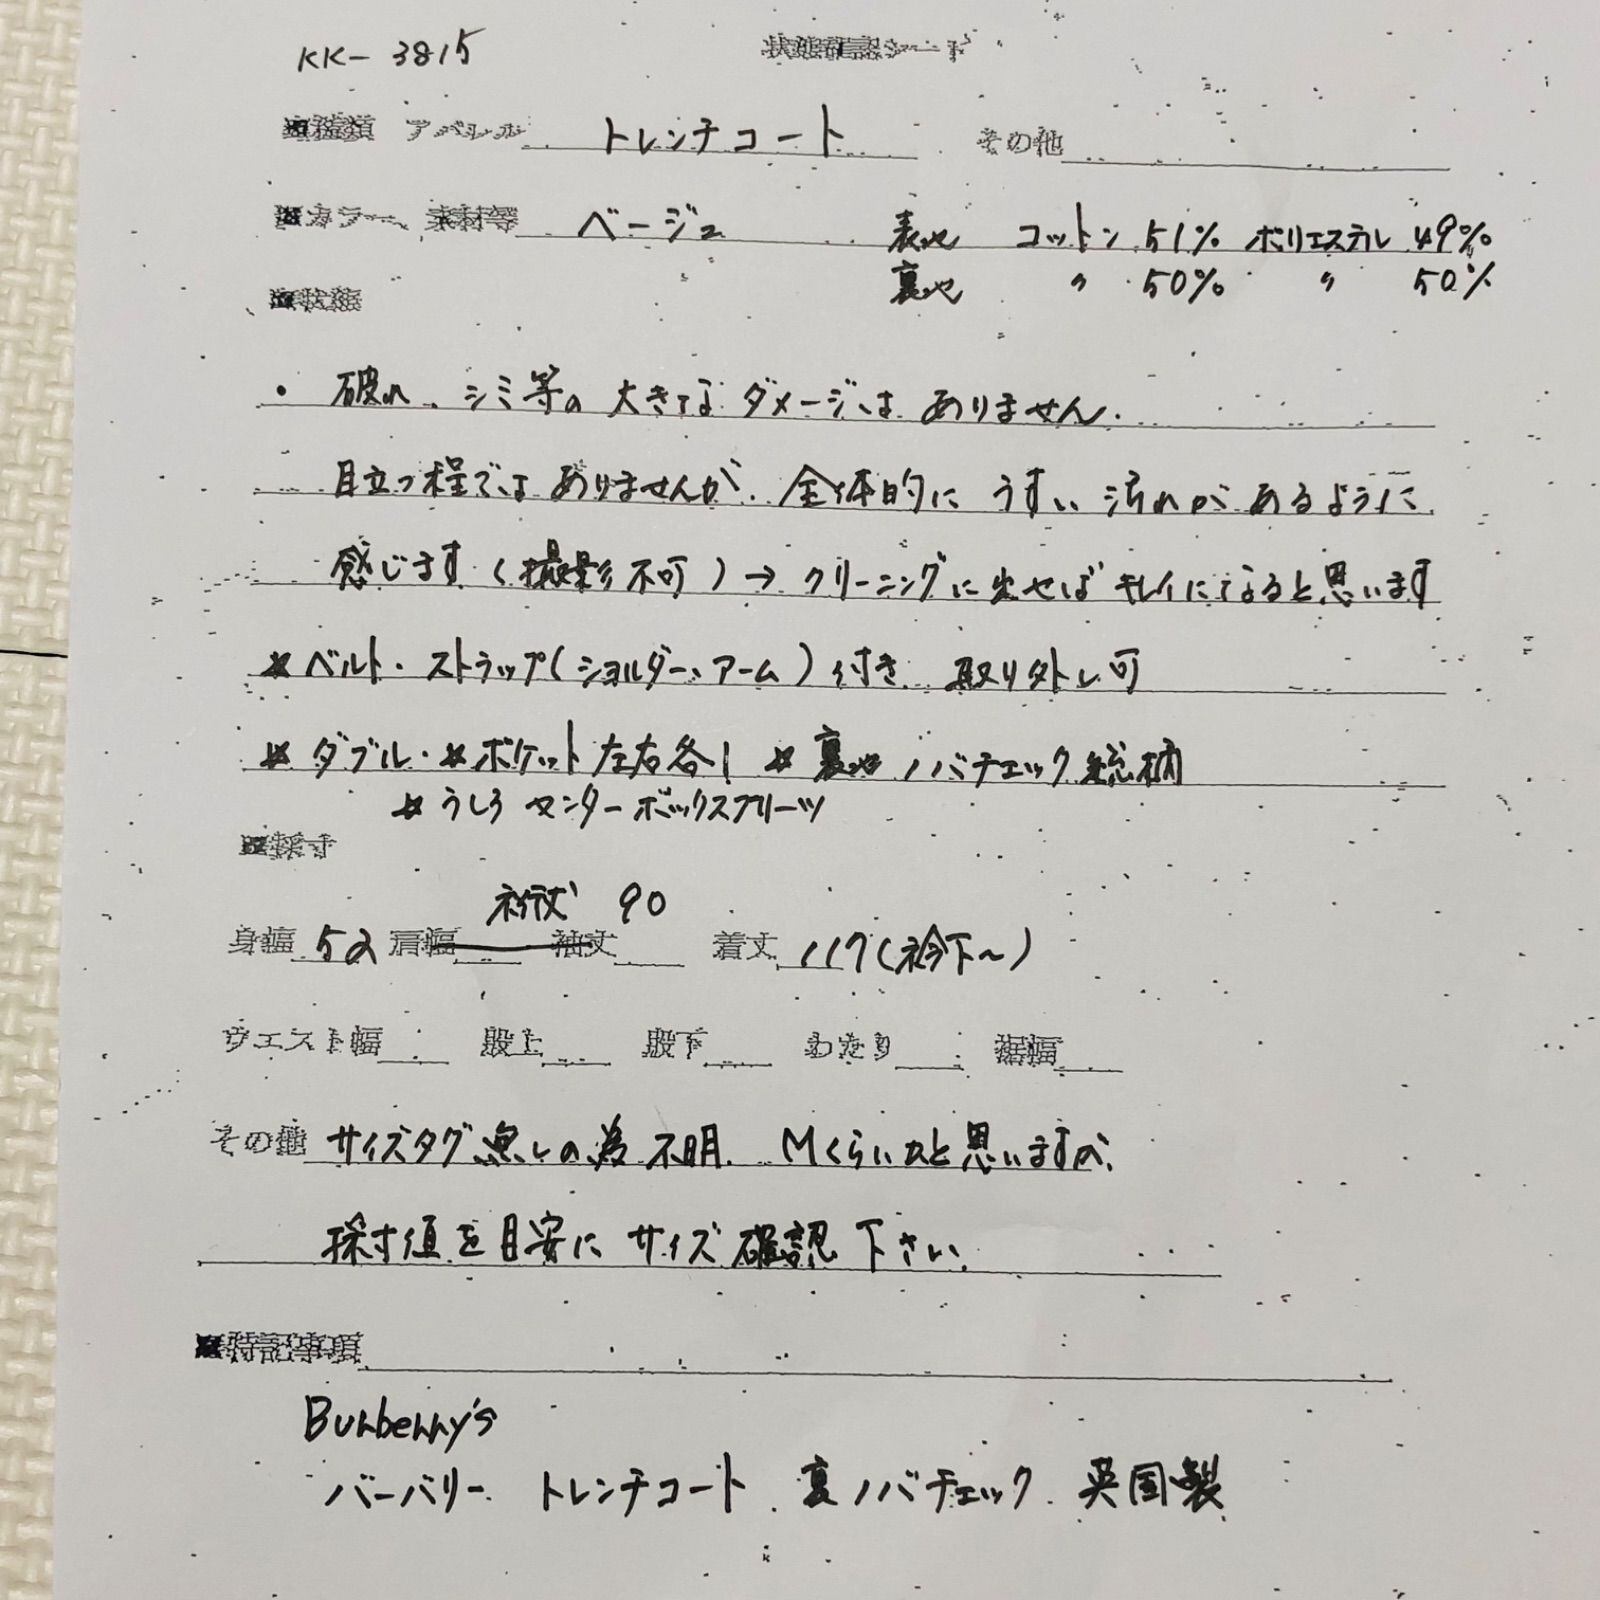 KK-3815 状態確認シート
■種類 アパレル トレンチコート その他
■カラー、素材等 ベージュ 表地 コットン 51% ポリエステル 49%
裏地 〃 50% 〃 50%
■状態
・破れ、シミ等の大きなダメージはありません.
目立つ程ではありませんが、全体的に うすい汚れがあるように
感じます(撮影不可)→クリーニングに出せばキレイになると思います
*ベルト・ストラップ(ショルダー、アーム)付き 取り外し可
*ダブル・*ポケット左右各1 *裏地ノバチェック総柄
*うしろ センターボックスプリーツ
■採寸
裄丈 90
身幅 52 肩幅 袖丈 着丈 117(衿下~)
ウエスト幅 股上 股下 わたり 裾幅
その他 サイズタグ無しの為不明. Mくらいかと思いますが、
採寸値を目安に サイズ確認下さい.
■特記事項
Burberry's
バーバリー トレンチコート. 裏ノバチェック. 英国製